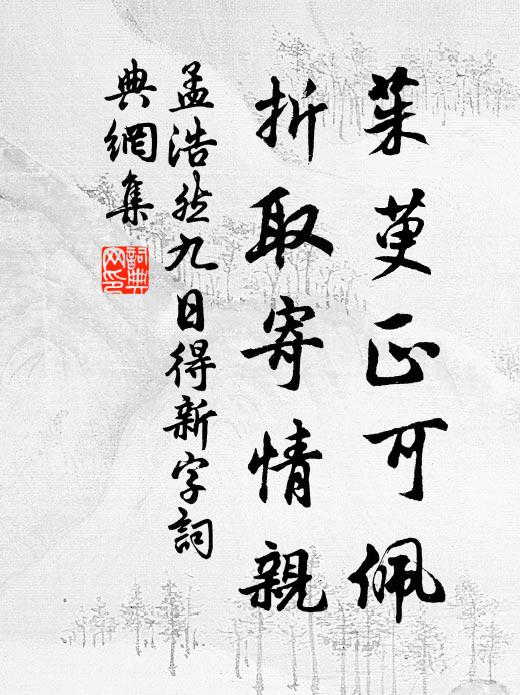 茱萸正可佩
折取寄情親
孟浩然九日得新字詞
典網集
詞典
网印